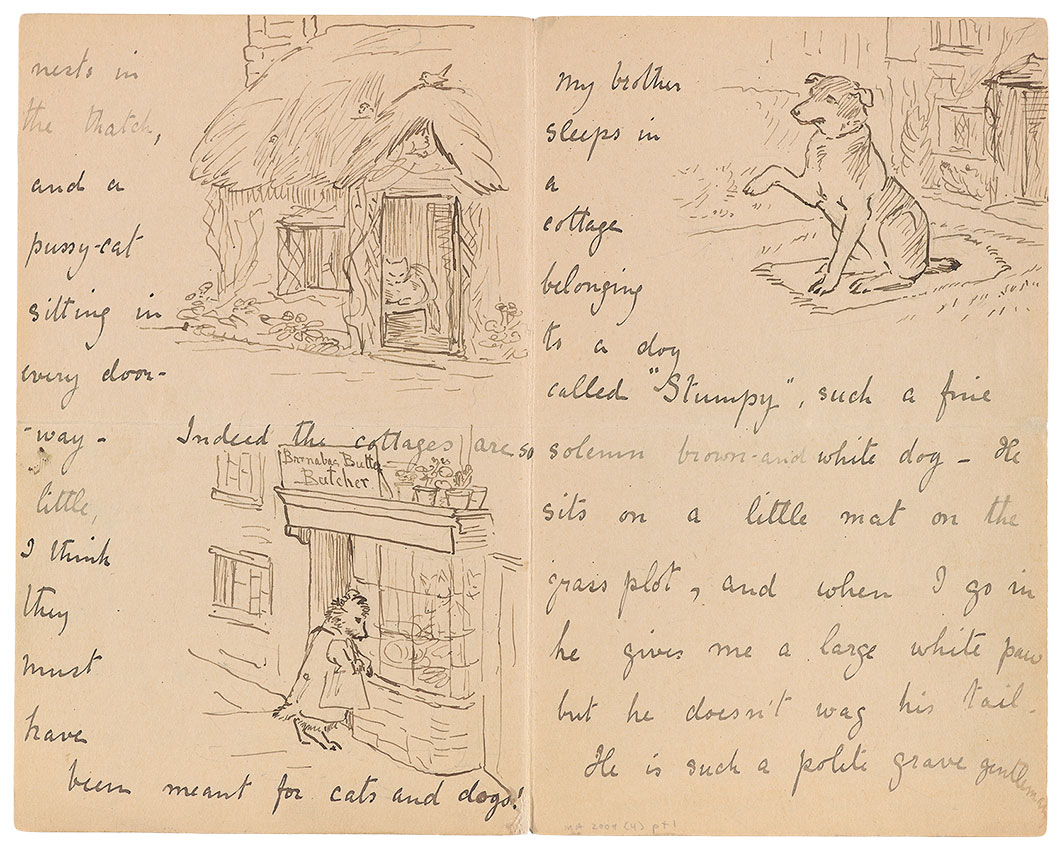 nests in
the thatch,
and a
pussy-cat
sitting in
every door-
-way - Indeed the cottages are so
Barnabas Butter
Butcher
little,
I think
they
must
have
been meant for cats and dogs!
My brother
sleeps in
a
cottage
belonging
to a dog
called "Stumpy", such a fine
solemn brown-and white dog - He
sits on a little mat on the
grass plot, and when I go in
he gives me a large white paw
but he doesn't wag his tail.
He is such a polite grave gentleman
MA 2009 (4) pt 1